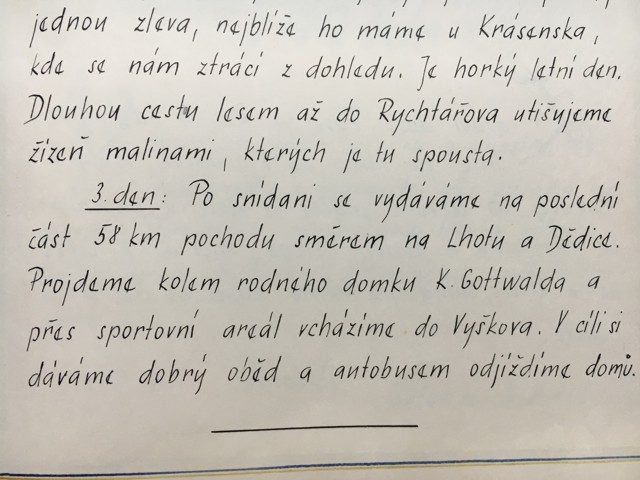 jednou zleva, nejblíže ho máme u Krásenska,
kde se nám ztrácí z dohledu. Je horký letní den.
Dlouhou cestu lesem až do Rychtářova utišujeme
žízeň malinami, kterých je tu spousta.
3. den: Po snídani se vydáváme na poslední
část 58 km pochodu směrem na Lhotu a Dědice.
Projdeme kolem rodného domku K. Gottwalda a
přes sportovní areál vcházíme do Vyškova. V cíli si
dáváme dobrý oběd a autobusem odjíždíme domů.